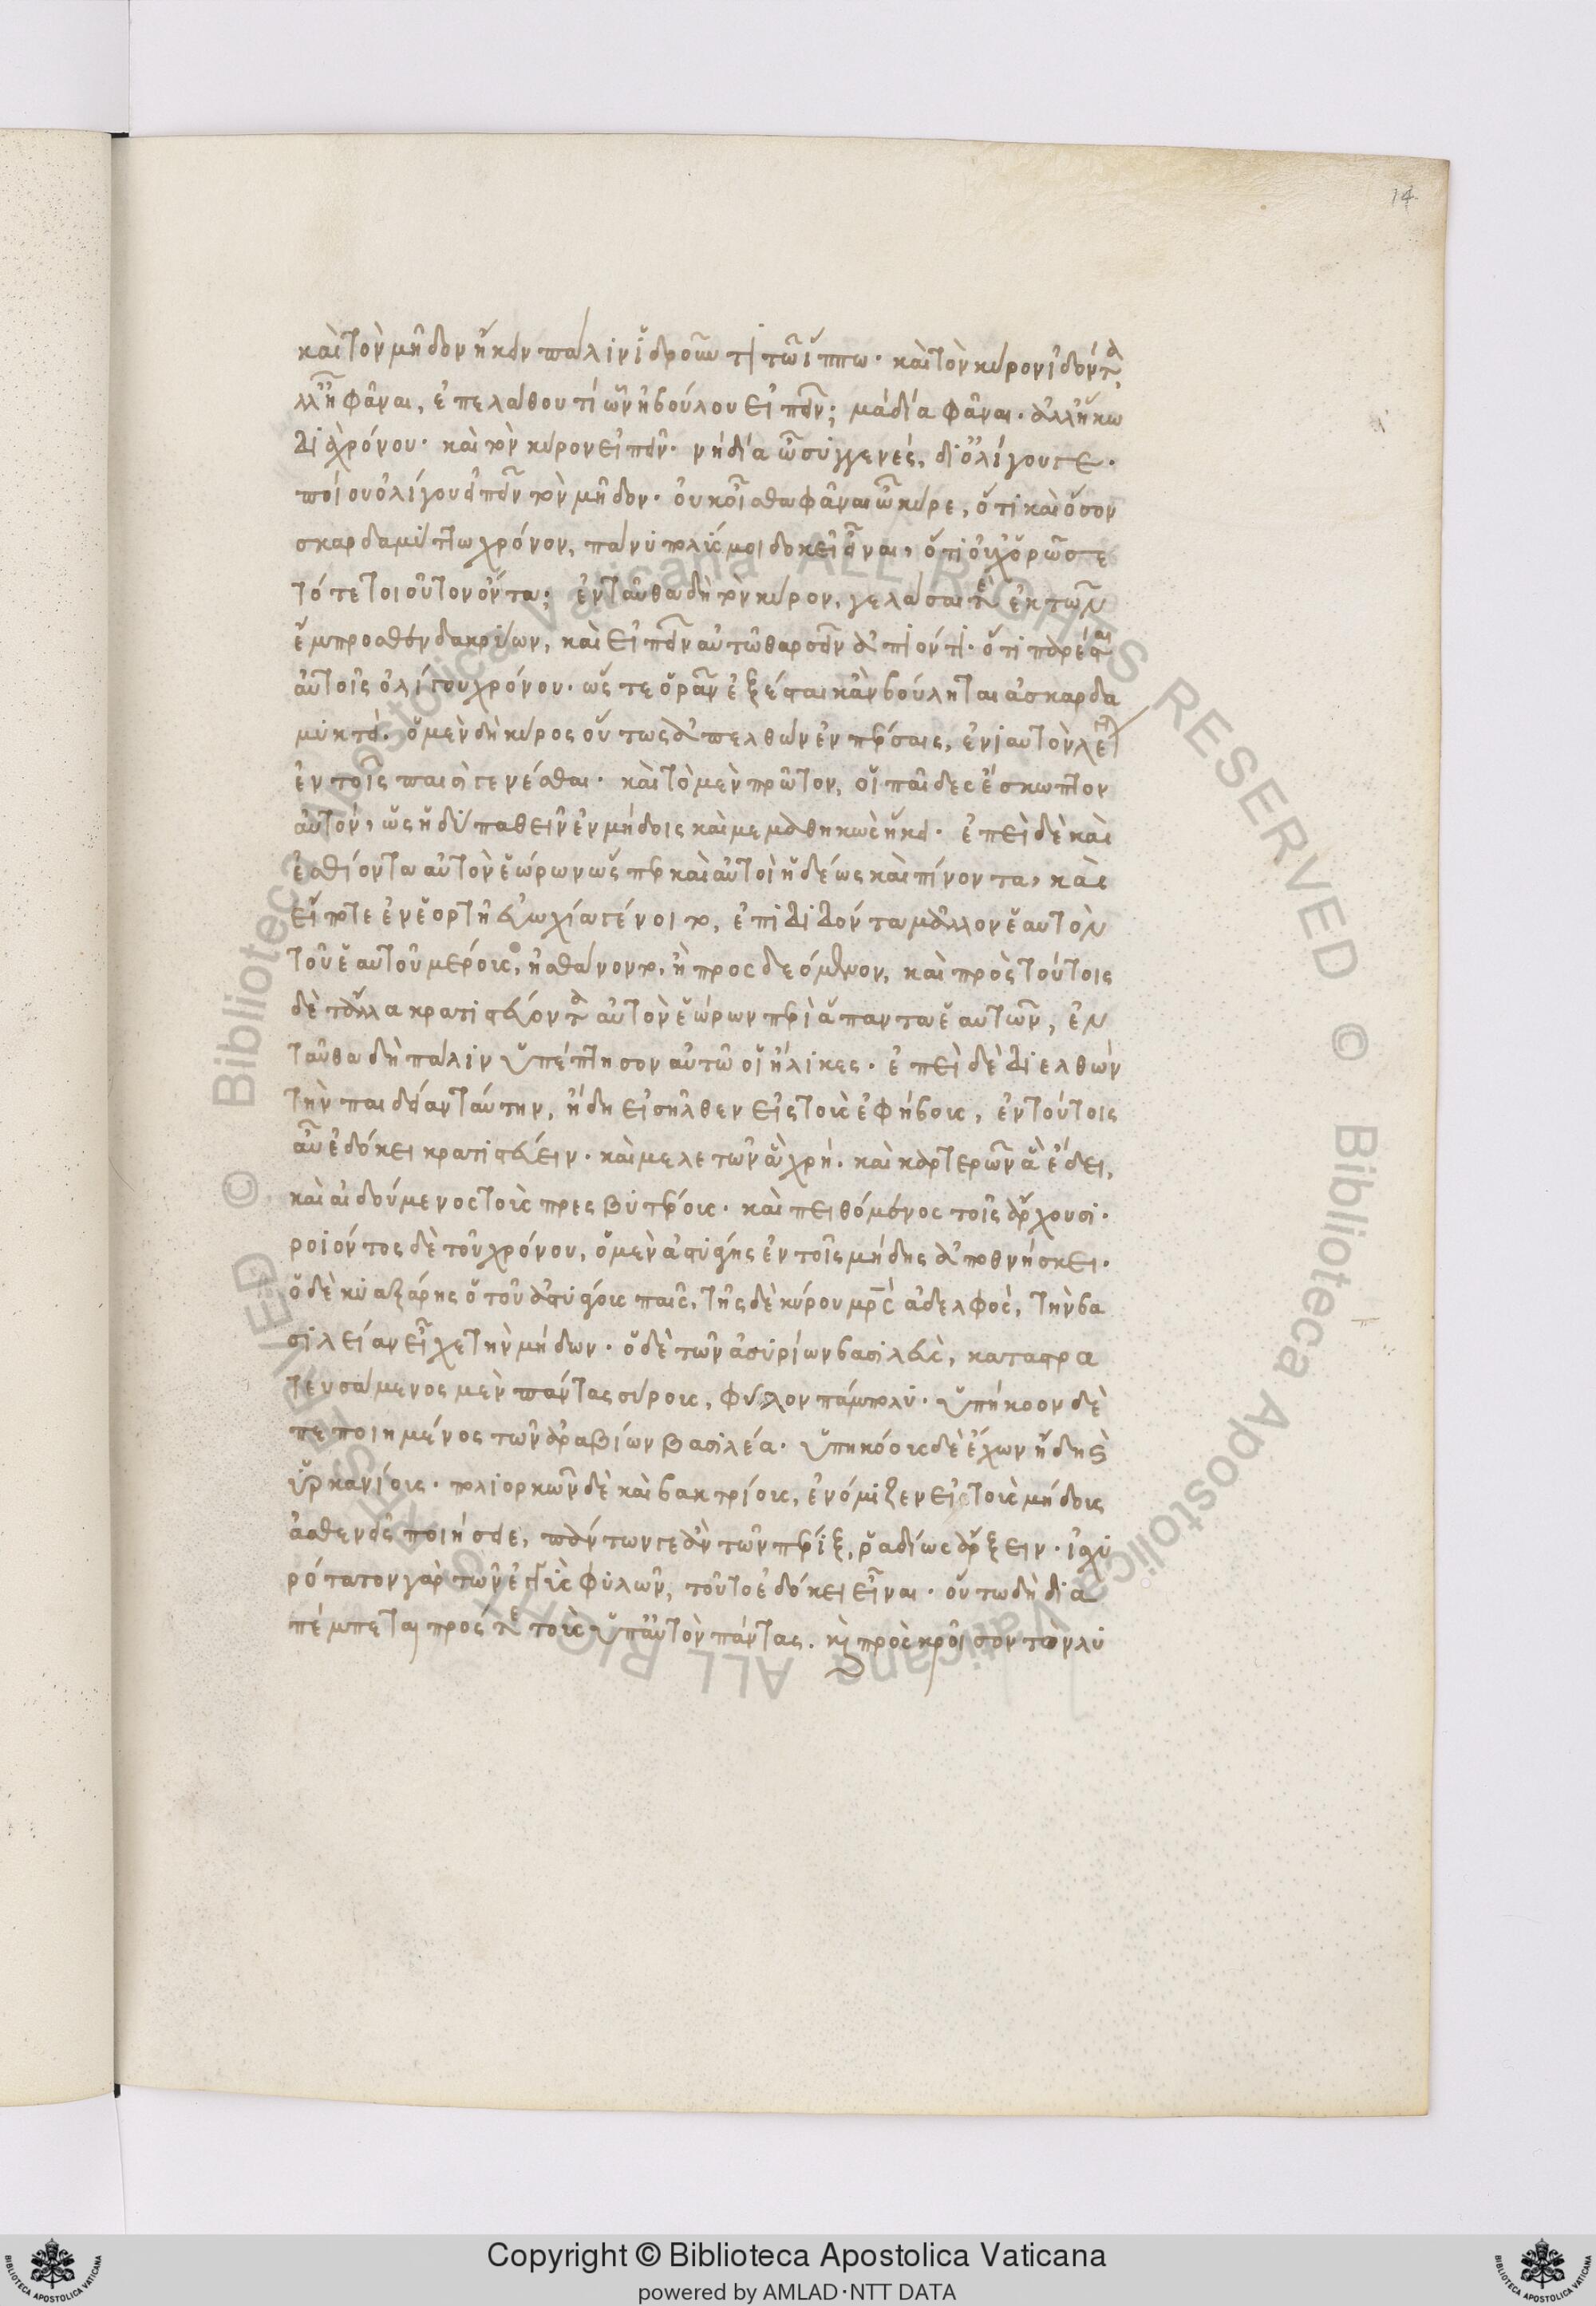 14
καὶ τὸν μῆδον ἥκειν πάλιν ἱδροῦντι τῶ ἵππω· καὶ τὸν κῦρον ἰδόντα,
ἀλλ' ἦ φάναι, ἐπελάθου τί ὧν ἠβούλου εἰπεῖν; μὰ δία φάναι· ἀλλ' ἥκω
διὰ χρόνου· καὶ τὸν κῦρον εἰπεῖν· νὴ δία ὦ σύγγενές, δι' ὀλίγου γε·
ποίου ὀλίγου εἰπεῖν τὸν μῆδον· οὐκ οἶσθα φάναι ὦ κῦρε, ὅτι καὶ ὅσον
σκαρδαμύττω χρόνον, πάνυ πολύς μοι δοκεῖ εἶναι, ὅτι οὐχ ὁρῶ σε
τότε τοιοῦτον ὄντα; ἐνταῦθα δὴ τὸν κῦρον, γελάσαι τε ἐκ τῶν
ἔμπροσθεν δακρύων, καὶ εἰπεῖν αὐτῶ θαρσεῖν ἀπιόντι· ὅτι παρέσται
αὐτοῖς ὀλίγου χρόνου· ὥς τε ὁρᾶν ἐξέσται κἂν βούληται ἀσκαρδα
μυκτεί· ὁ μὲν δὴ κῦρος οὕτως ἀπελθὼν ἐν πέρσαις, ἐνιαυτὸν λέγεται
ἐν τοῖς παισὶ γενέσθαι· καὶ τὸ μὲν πρῶτον, οἱ παῖδες ἔσκωπτον
αὐτόν, ὡς ἡδυπαθεῖν ἐν μήδοις καὶ μεμαθηκὼς ἥκει· ἐπεὶ δὲ καὶ
ἐσθίοντα αὐτὸν ἑώρων ὥσπερ καὶ αὐτοὶ ἡδέως καὶ πίνοντα, καὶ
εἴ ποτε ἐν ἑορτῆ εὐωχία γένοιτο, ἐπιδιδόντα μᾶλλον ἑαυτὸν
τοῦ ἑαυτοῦ μέρους, ἠσθάνοντο, ἢ προς δεόμενον, καὶ πρὸς τούτοις
δὲ τἄλλα κρατιστεύοντα αὐτὸν ἑώρων περὶ ἅπαντα ἑαυτῶν, ἐν
ταῦθα δὴ πάλιν ὑπέπτησον αὐτῶ οἱ ἥλικες· ἐπεὶ δὲ διελθὼν
τὴν παιδείαν ταύτην, ἤδη εἰσῆλθεν εἰς τοὺς ἐφήβους, ἐν τούτοις
αὖ ἐδόκει κρατιστεύειν· καὶ μελετῶν ἃ χρή· καὶ καρτερῶν ἃ ἔδει,
καὶ αἰδούμενος τοὺς πρεσβυτέρους· καὶ πειθόμενος τοῖς ἄρχουσι·
ροιόντος δὲ τοῦ χρόνου, ὁ μὲν ἀστυάγης ἐν τοῖς μήδης ἀποθνήσκει·
ὁ δὲ κυαξάρης ὁ τοῦ ἀστυάγους παῖς, τῆς δὲ κύρου μρς ἀδελφός, τὴν βα
σιλείαν εἶχε τὴν μήδων· ὁ δὲ τῶν ἀσυρίων βασιλεὺς, καταστρα
τευσάμενος μὲν πάντας σύρους, φύλον πάμπολυ· ὑπήκοον δὲ
πεποιημένος τῶν ἀραβίων βασιλέα· ὑπηκόους δὲ ἔχων ἤδη καὶ
ὑρκανίους· πολιορκῶν δὲ καὶ βακτρίους, ἐνόμιζεν εἰ τοὺς μήδους
ἀσθενεῖς ποιήσειε, πάντων γε ἂν τῶν πέριξ, ῥαδίως ἄρξειν· ἰσχυ
ρότατον γὰρ τῶν ἐγγὺς φύλων, τοῦτο ἐδόκει εἶναι· οὕτω δὴ δια
πέμπεται πρός τε τοὺς ὑπ' αὐτὸν πάντας. καὶ πρὸς κροῖσον τὸν λυ